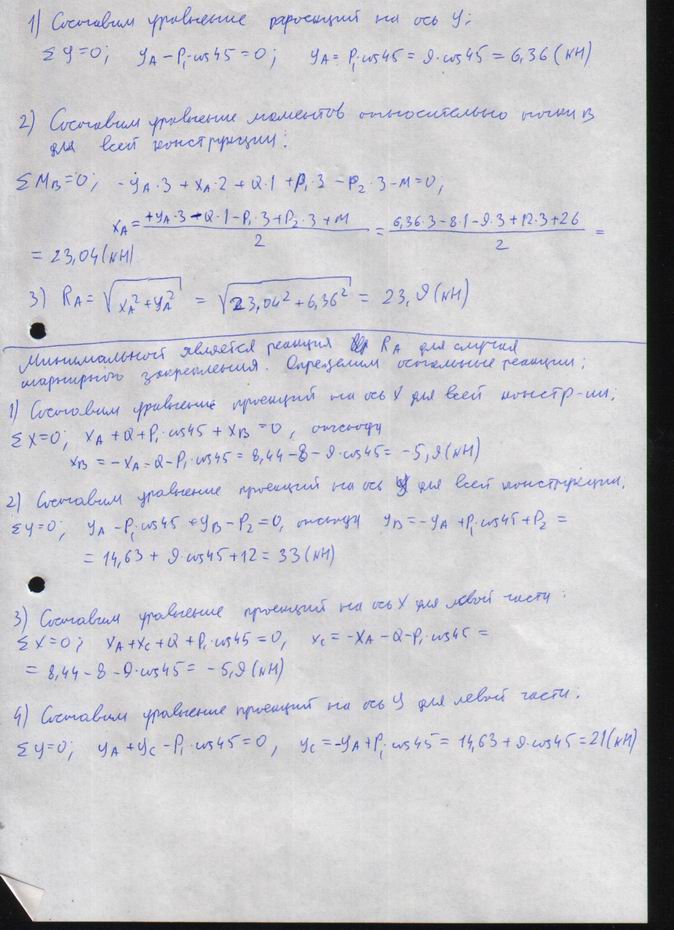 1) Составим уравнение проекций на ось y:
Σy=0; yA − P₁·cos45=0; yA = P₁cos45 = 9·cos45 = 6,36(кН)
2) Составим уравнение моментов относительно точки B
для всей конструкции:
ΣMB=0; −yA·3 + xA·2 + Q·1 + P₁·3 − P₂·3 − M=0;
xA = (+yA·3 − Q·1 − P₁·3 + P₂·3 + M)/2 = (6,36·3 − 8·1 − 9·3 + 12·3 + 26)/2 =
= 23,04(кН)
3) RA = √(xA² + yA²) = √(23,04² + 6,36²) = 23,9(кН)
Минимальной является реакция RA для случая
шарнирного закрепления. Определим остальные реакции:
1) Составим уравнение проекций на ось X для всей констр-ии:
Σx=0; xA + Q + P₁·cos45 + xB = 0, откуда
xB = −xA − Q − P₁·cos45 = 8,44 − 8 − 9·cos45 = −5,9(кН)
2) Составим уравнение проекций на ось y для всей конструкции.
Σy=0; yA − P₁cos45 + yB − P₂=0, откуда yB = −yA + P₁cos45 + P₂ =
= 14,63 + 9·cos45 + 12 = 33(кН)
3) Составим уравнение проекций на ось X для левой части:
Σx=0; xA + xC + Q + P₁cos45 = 0, xC = −xA − Q − P₁·cos45 =
= 8,44 − 8 − 9·cos45 = −5,9(кН)
4) Составим уравнение проекций на ось y для левой части:
Σy=0; yA + yC − P₁·cos45 = 0, yC = −yA + P₁cos45 = 14,63 + 9·cos45 = 21(кН)